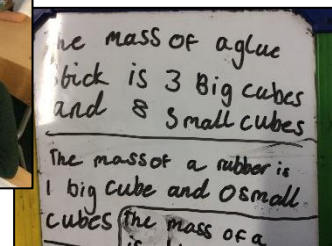 he mass of a glue
stick is 3 Big cubes
and 8 Small cubes
The mass of a rubber is
1 big cube and 0 small
cubes
the mass of a
is